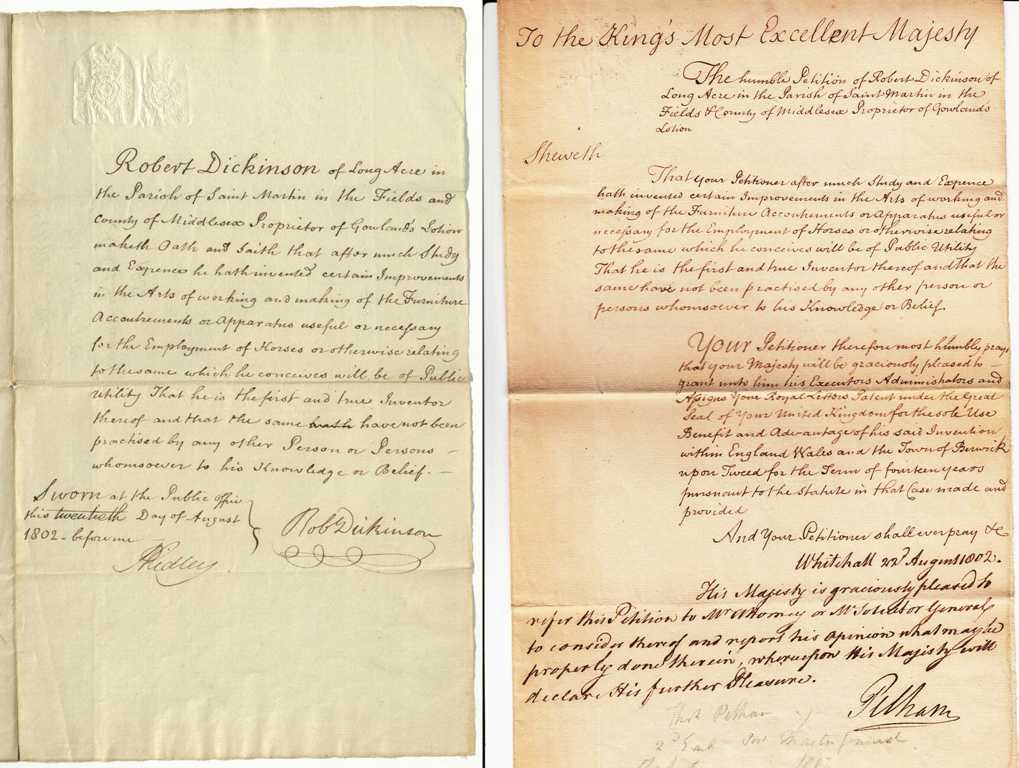 Robert Dickinson of Long Acre in
the Parish of Saint Martin in the Fields and
County of Middlesex Proprietor of Gowland's Lotion
maketh Oath and Saith that after much Study
and Expence he hath invented certain Improvements
in the Arts of working and making of the Furniture
Accoutrements or Apparatus useful or necessary
for the Employment of Horses or otherwise relating
to the same which he conceives will be of Public
Utility That he is the first and true Inventor
thereof and that the same hath have not been
practised by any other Person or Persons
whomsoever to his Knowledge or Belief.
Sworn at the Public Office
this twentieth Day of August
1802 - before me
Rob Dickinson
Ridley
To the King's Most Excellent Majesty
The humble Petition of Robert Dickinson of
Long Acre in the Parish of Saint Martin in the
Fields & County of Middlesex Proprietor of Gowland's
Lotion
Sheweth
That Your Petitioner after much Study and Expence
hath invented certain Improvements in the Arts of working and
making of the Furniture Accoutrements or Apparatus useful or
necessary for the Employment of Horses or otherwise relating
to the same which he conceives will be of Public Utility
That he is the first and true Inventor thereof and that the
same have not been practised by any other person or
persons whomsoever to his Knowledge or Belief.
Your Petitioner therefore most humbly prays
that your Majesty will be graciously pleased to
grant unto him his Executors Administrators and
Assigns Your Royal Letters Patent under the Great
Seal of Your United Kingdom for the sole Use
Benefit and Advantage of his said Invention
within England Wales and the Town of Berwick
upon Tweed for the Term of fourteen years
pursuant to the Statute in that Case made and
provided
And Your Petitioner shall ever pray &c
Whitehall 22d August 1802.
His Majesty is graciously pleased to
refer this Petition to Mr Attorney or Mr Solicitor General
to consider thereof and report his opinion what may be
properly done therein, whereupon His Majesty will
declare His further Pleasure.
Pelham
Thos Pelham
2d Earl